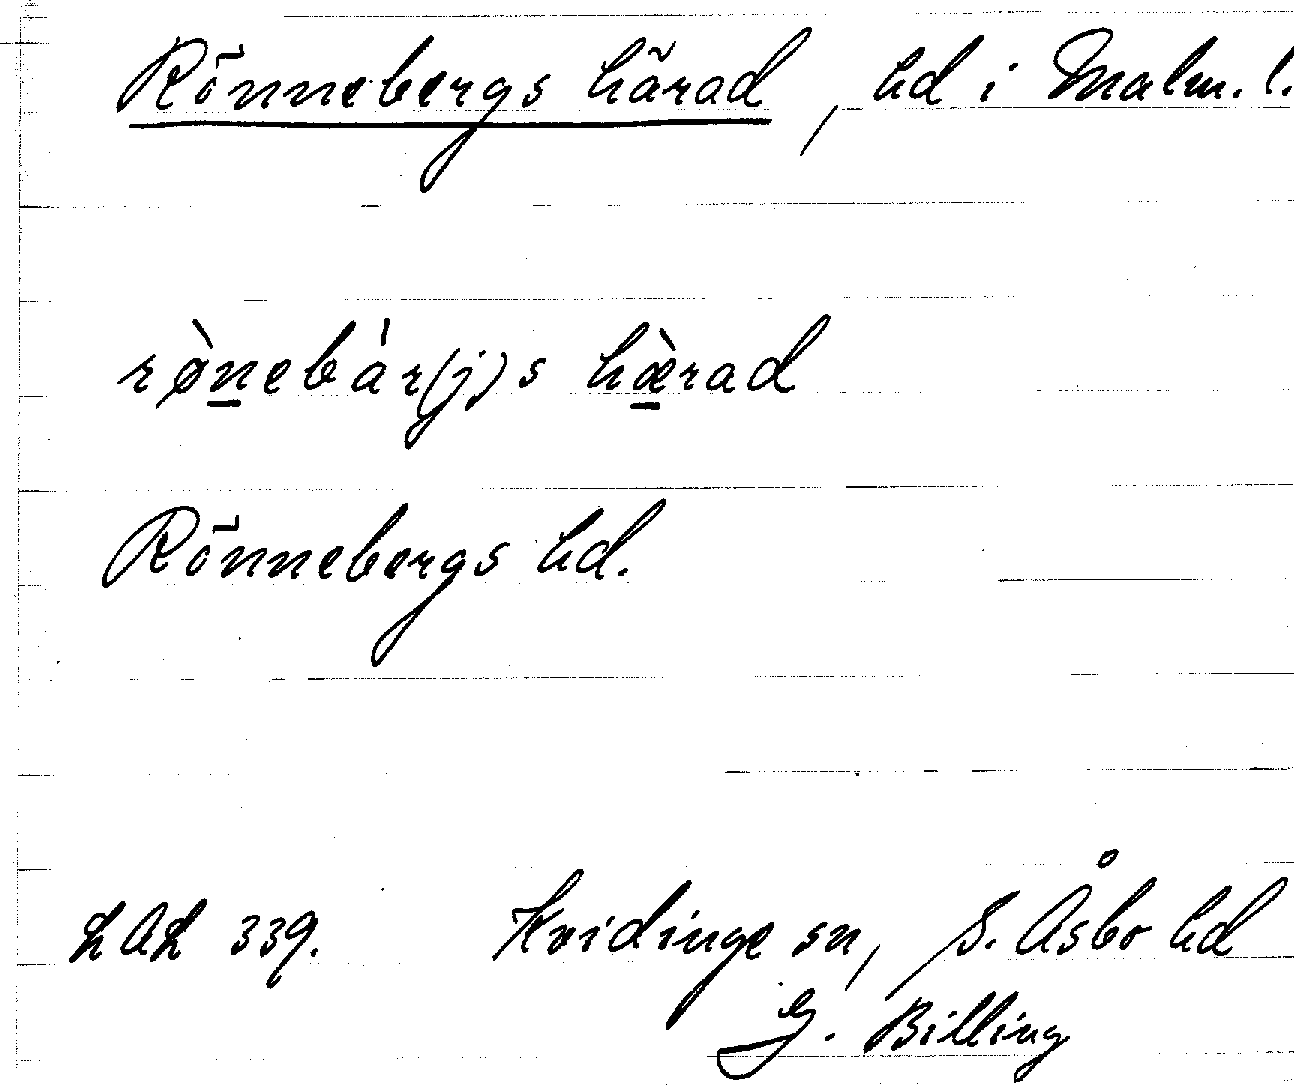 Rönnebergs härad, hd i Malm. l.
rø̀nebàr(j)s hæ̀rad
Rönnebergs hd.
LAL 339. Kvidinge sn, S. Åsbo hd
G. Billing